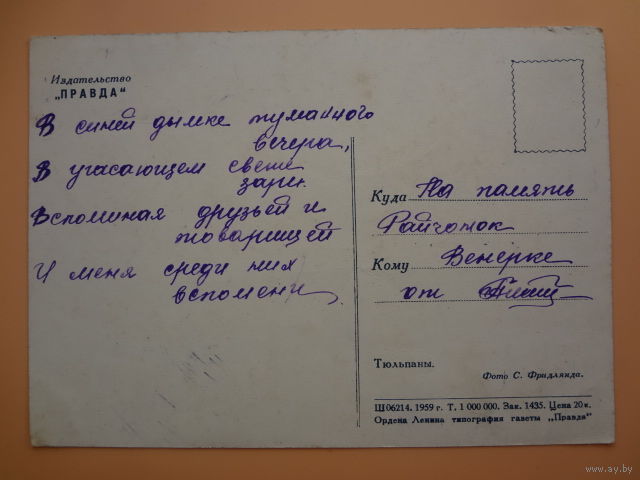 Издательство
„ПРАВДА“
В синей дымке туманного
вечера,
В угасающем свете
зари.
Вспоминая друзей и
товарищей
И меня среди них
вспомени.
Куда На память
Райчонок
Кому Венерке
от
Тюльпаны.
Фото С. Фридлянда.
Ш06214. 1959 г. Т. 1 000 000. Зак. 1435. Цена 20 к.
Ордена Ленина типография газеты „Правда“
www.ay.by